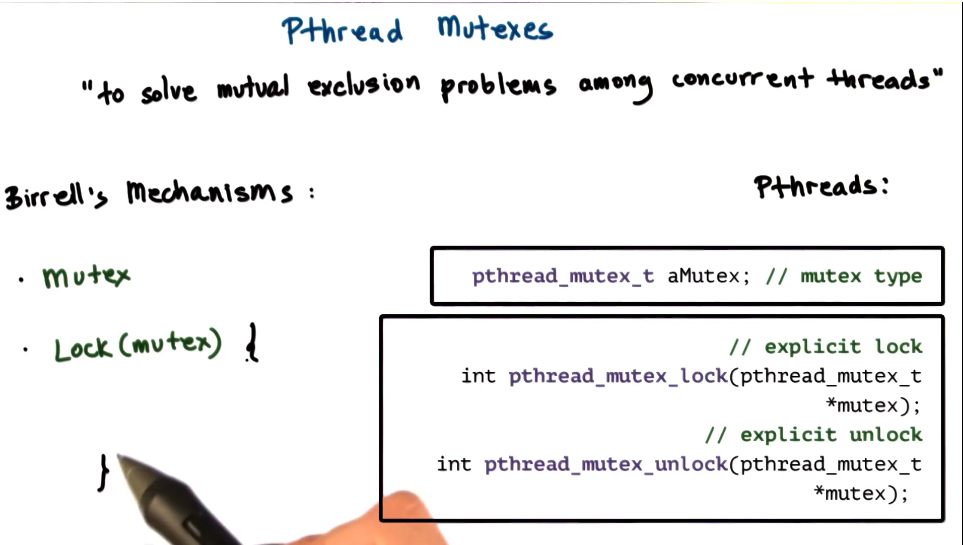 Pthread Mutexes
"to solve mutual exclusion problems among concurrent threads"
Birrell's Mechanisms :
Pthreads:
· Mutex
pthread_mutex_t aMutex; // mutex type
· Lock (mutex) {
}
// explicit lock
int pthread_mutex_lock(pthread_mutex_t
*mutex);
// explicit unlock
int pthread_mutex_unlock(pthread_mutex_t
*mutex);